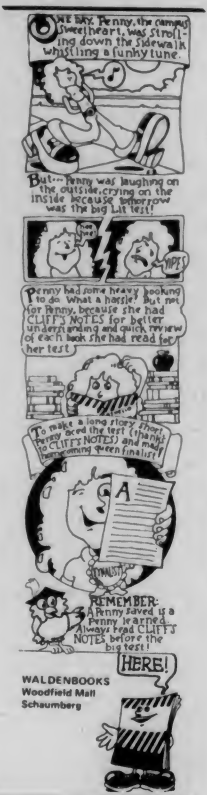 ONE DAY, Penny, the campus
sweetheart, was stroll-
ing down the sidewalk
whistling a funky tune.
But--- Penny was laughing on
the outside, crying on the
inside because tomorrow
was the big Lit test!
YIPES
Penny had some heavy booking
to do. What a hassle! But not
for Penny, because she had
CLIFF'S NOTES for better
understanding and quick review
of each book she had read for
her test.
To make a long story short
Penny aced the test (thanks
to CLIFF'S NOTES) and made
homecoming queen finalist!
A
FINALIST
REMEMBER:
A Penny saved is a
Penny learned.
Always read CLIFF'S
NOTES before the
big test!
HERE!
WALDENBOOKS
Woodfield Mall
Schaumberg